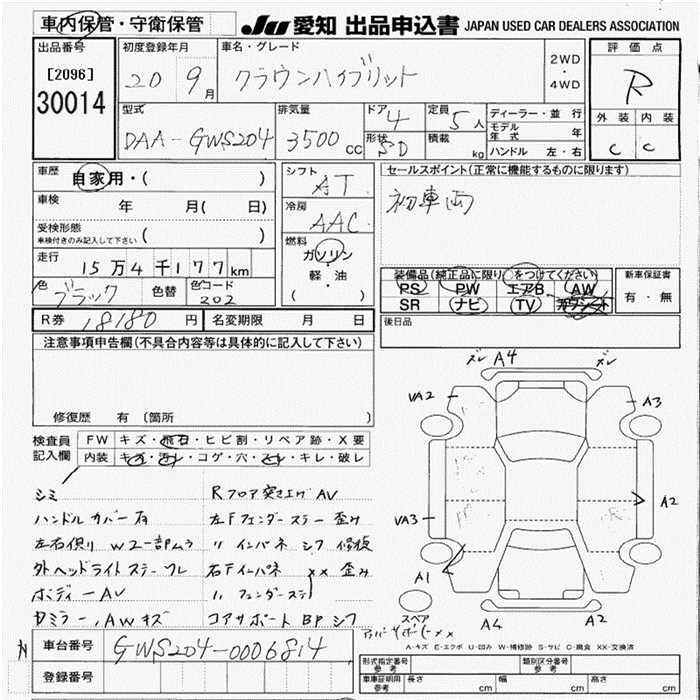 車内保管・守衛保管
JU 愛知 出品申込書 JAPAN USED CAR DEALERS ASSOCIATION
出品番号
[2096]
30014
初度登録年月
20 9月
車名・グレード
クラウンハイブリット
2WD
・
4WD
評価点
R
外装 内装
C C
型式
DAA-GWS204
排気量
3500 cc
ドア 4
形状 SD
定員 5人
積載 kg
ディーラー・並行
モデル年式 年
ハンドル 左・右
車歴 自家用・( )
車検 年 月( 日)
受検形態
車検付きのみ記入して下さい ( )
走行 15万4千177km
色 ブラック 色替 色コード 202
シフト AT
冷房 AAC
燃料
ガソリン
軽・油
( )
セールスポイント(正常に機能するものに限ります)
初車両
装備品(純正品に限り○をつけてください)
PS PW エアB AW
SR ナビ TV
新車保証書
有・無
後日品
R券 18180円 名変期限 月 日
注意事項申告欄(不具合内容等は具体的に記入して下さい)
修復歴 有 (箇所
検査員
記入欄
FW キズ・飛石・ヒビ割・リペア跡・X要
内装 キズ・汚レ・コゲ・穴・スレ・キレ・破レ
シミ
ハンドルカバー有
左右側リ W2一部ムラ
外ヘッドライトステー ワレ
ボディーAV
Rフロア突き上げ AV
左Fフェンダーステー歪み
〃 インパネ シワ 修復
右Fインパネ ×× 歪み
〃 フェンダーステー
コアサポート BP シワ
ズレ A4 ズレ
VA2
A3
A2
VA3
A1
スペア
A4
A2
A-キズ E-エクボ U-凹み W-補修跡 S-サビ C-腐食 XX-交換済
車台番号 GWS204-0006814
登録番号
形式指定番号 参考
類別区分番号 参考
車庫証明用 参考 長さ cm 幅 cm 高さ cm